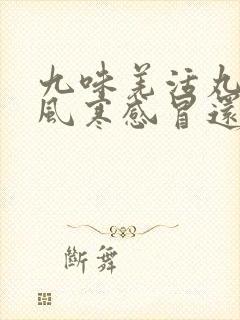 九味羌活丸
風寒感冒還
斷舞